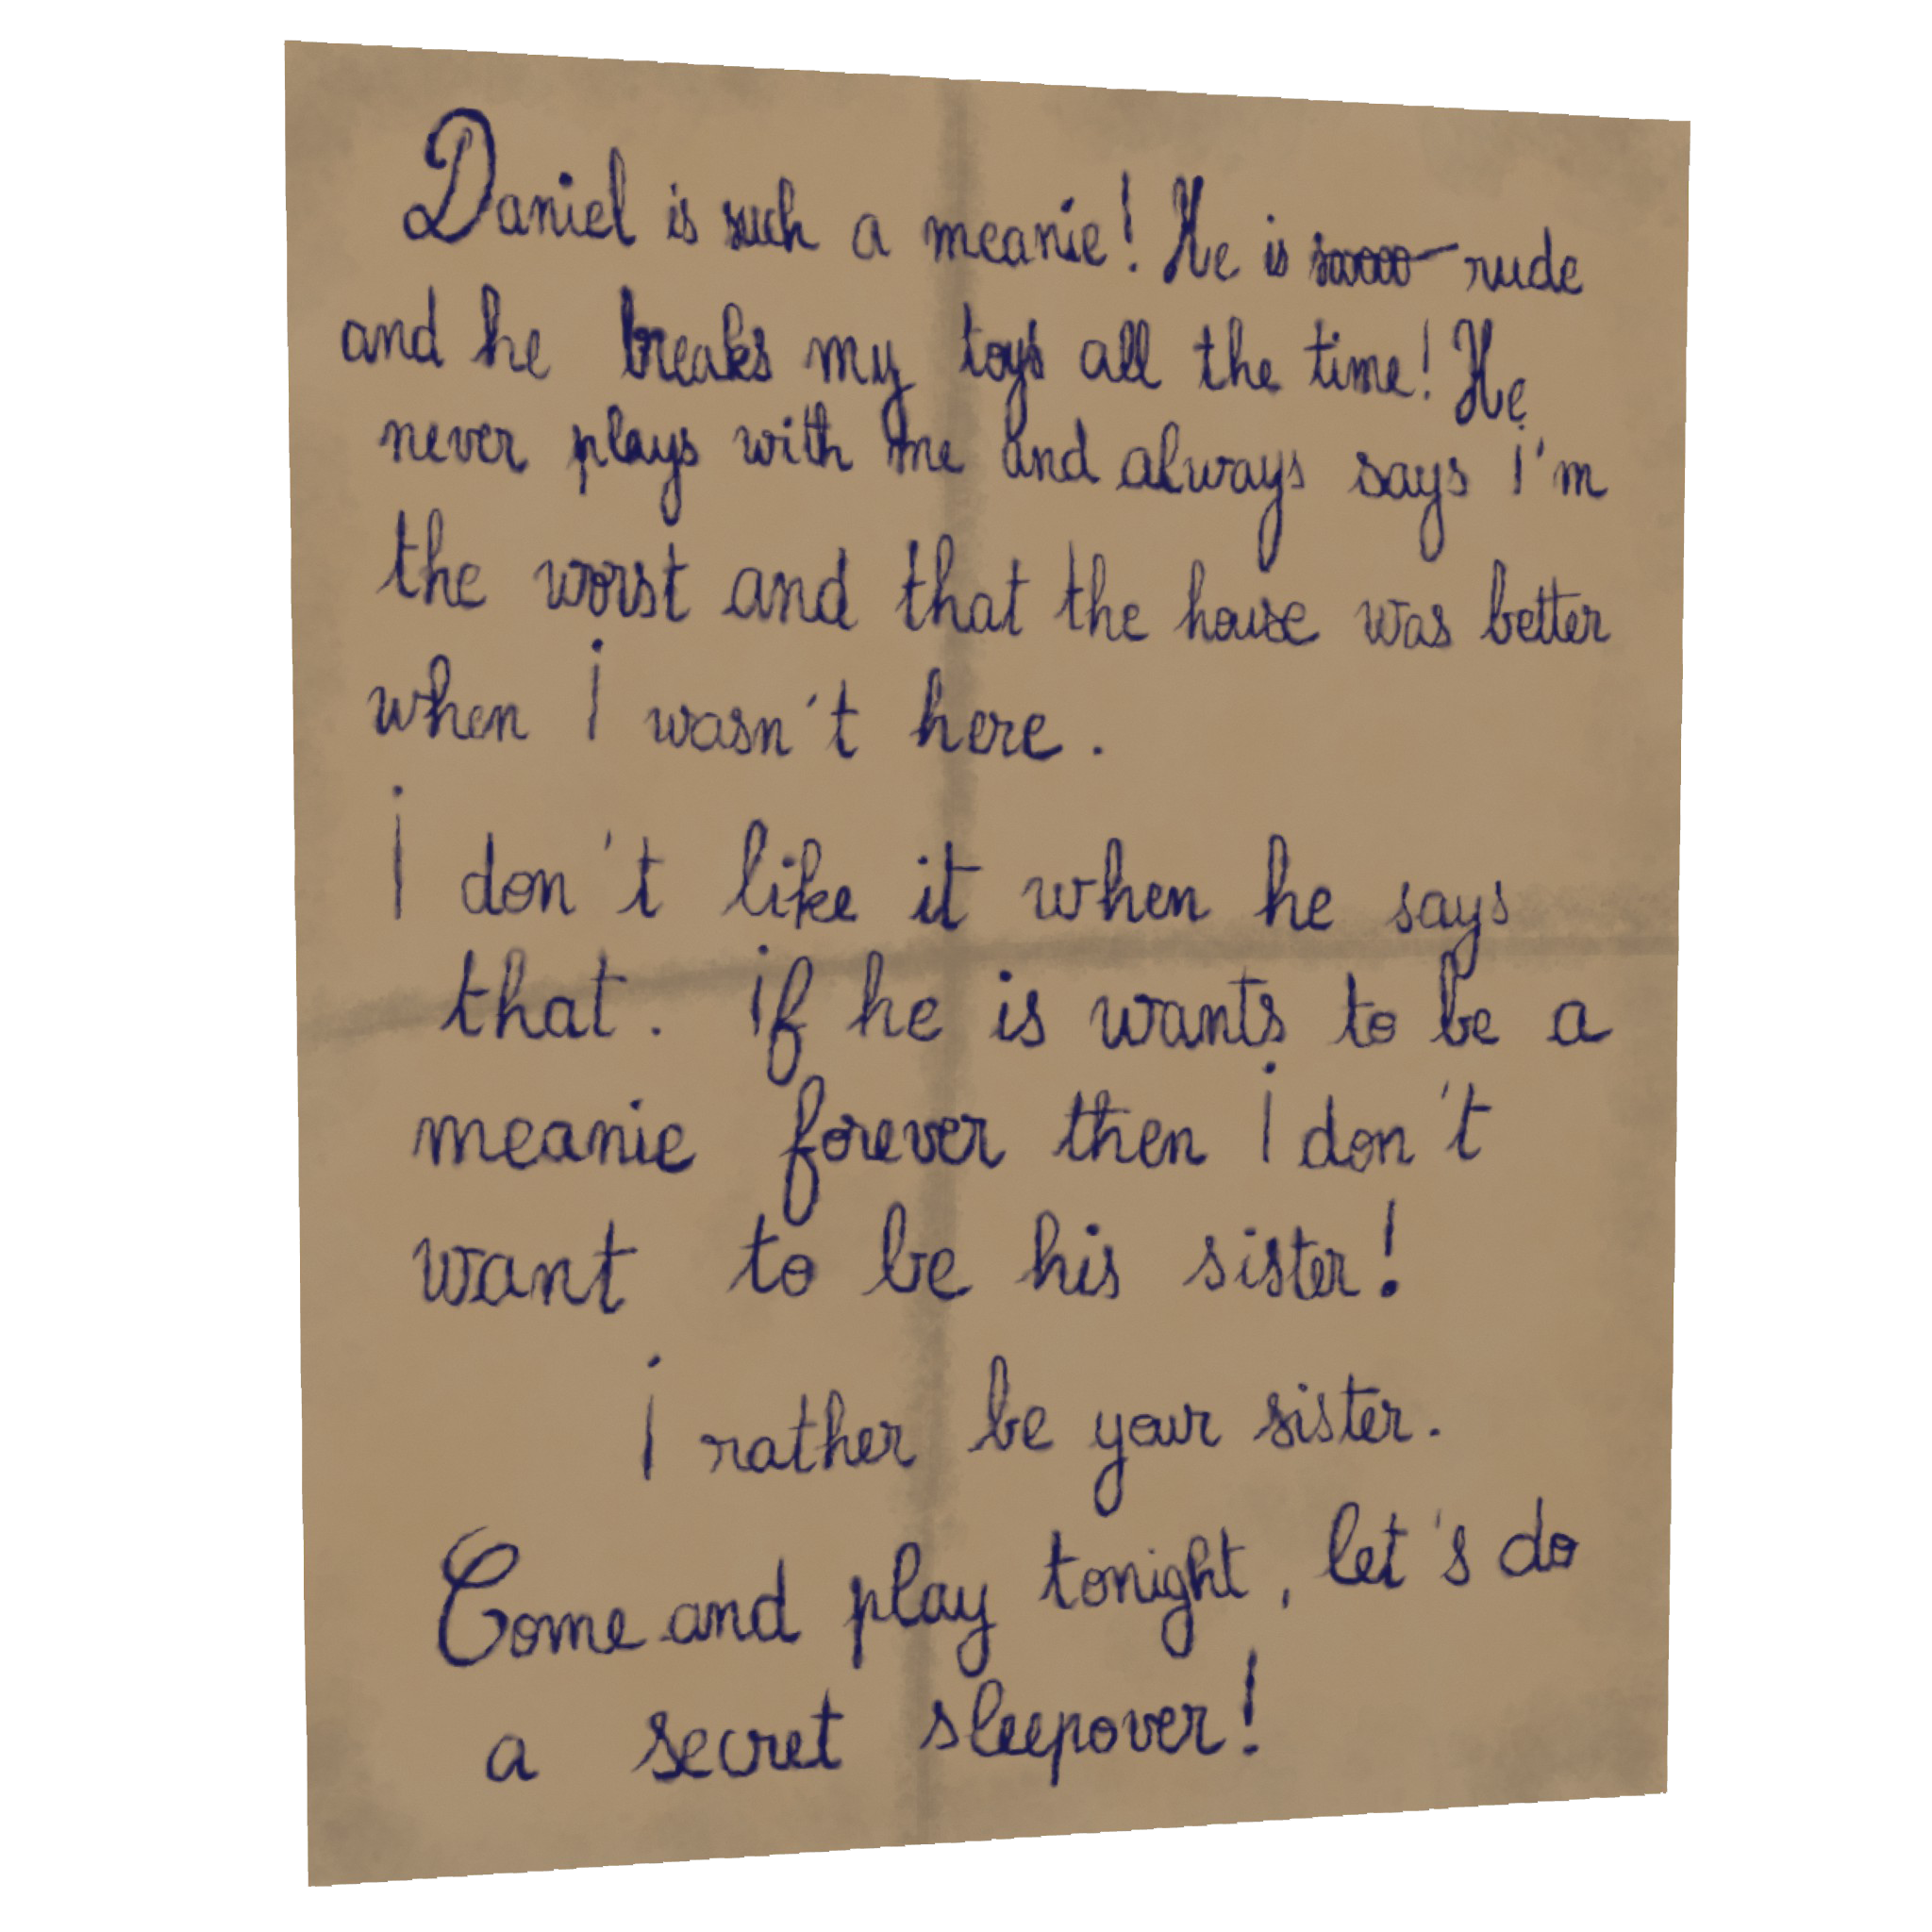 Daniel is such a meanie! He is soooo rude
and he breaks my toys all the time! He
never plays with me and always says I'm
the worst and that the house was better
when I wasn't here.
I don't like it when he says
that. If he is wants to be a
meanie forever then I don't
want to be his sister!
I rather be your sister.
Come and play tonight, let's do
a secret sleepover!